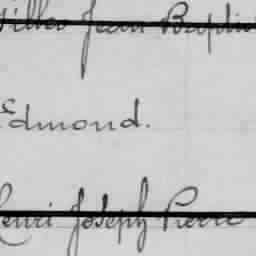 Jean Baptis
Edmond.
Henri Joseph Pierre